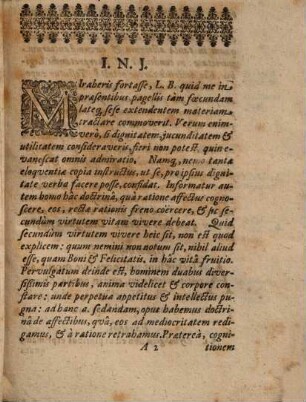 I. N. J.
MIraberis fortasse, L. B. quid me in
præsentibus pagellis tàm fœcundam
lateq, sese extendentem materiam
tractare commoverit. Verum enim
verò, si dignitatem, jucunditatem &
utilitatem consideraveris, fieri non potest, quin e-
vanescat omnis admiratio. Namq, nemo tantæ
eloquentiæ copia instructus, ut se, pro ipsius digni-
tate verba facere posse, confidat. Informatur au-
tem homo hâc doctrinâ, quâ ratione affectus cogno-
scere, eos, rectæ rationis freno coërcere, & sic se-
cundùm virtutem vitam vivere debeat. Quid
secundùm virtutem vivere heic sit, non est quod
explicem: quum nemini non notum sit, nihil aliud
esse, quam Boni & Felicitatis, in hâc vitâ fruitio.
Pervulgatum deinde est, hominem duabus diver-
sissimis partibus, anima videlicet & corpore con-
stare: unde perpetua appetitus & intellectus pu-
gna: ad hanc a. sedandam, opus habemus doctri-
nâ de affectibus, quâ, eos ad mediocritatem redi-
gamus, & à ratione retrahamus. Prætereà, cogni-
A 2 tionem